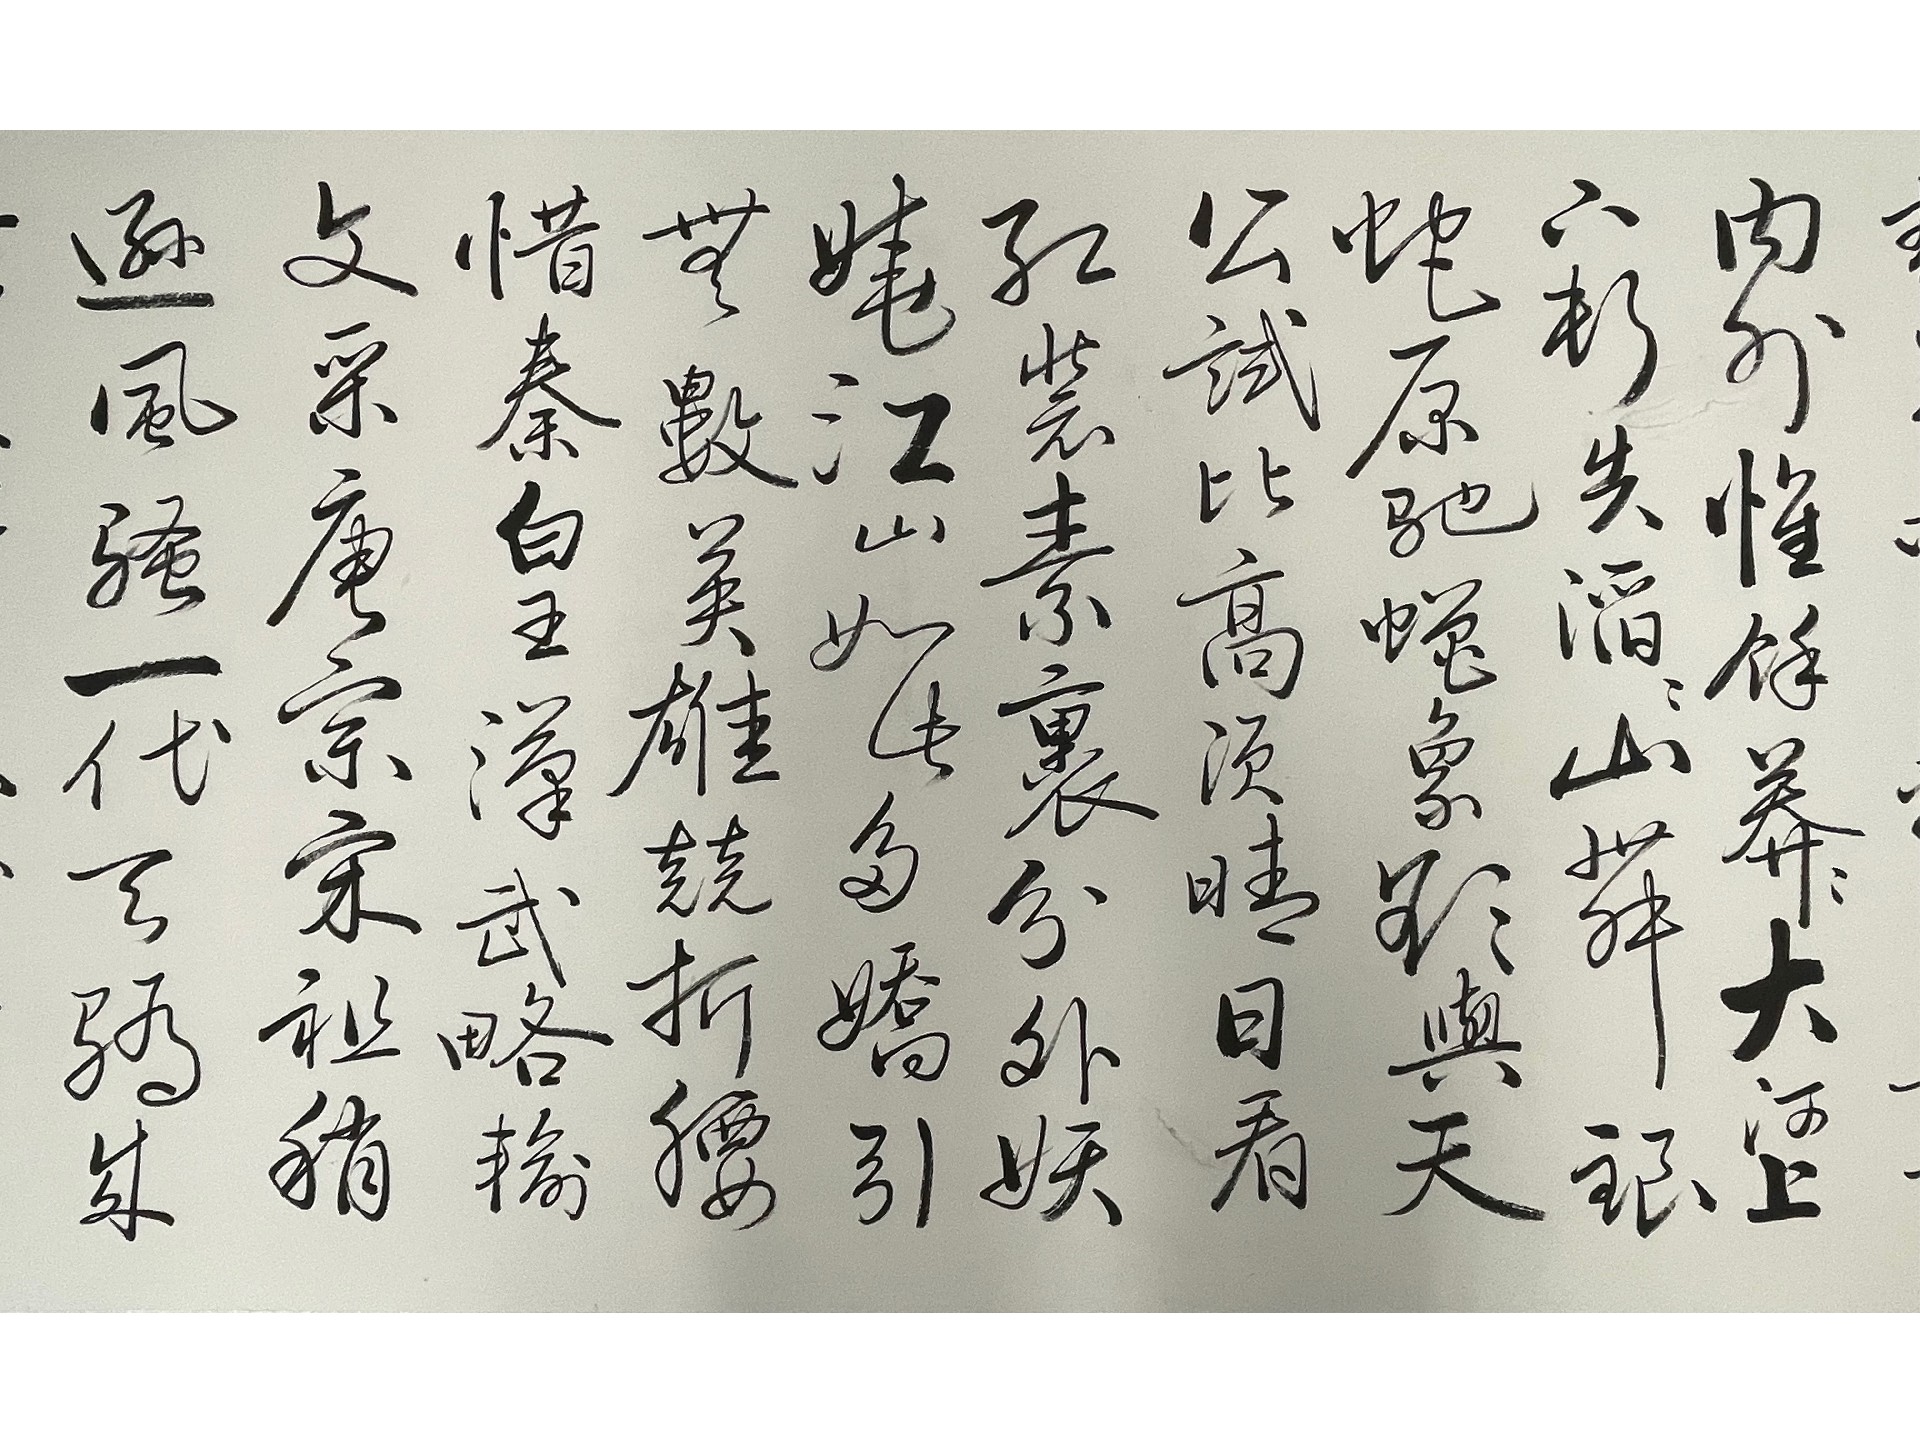 内外惟餘莽〻大河上
下頓失滔〻山舞銀
蛇原馳蠟象欲與天
公試比高須晴日看
紅裝素裹分外妖
嬈江山如此多嬌引
無數英雄競折腰
惜秦皇漢武略輸
文采唐宗宋祖稍
遜風騷一代天驕成